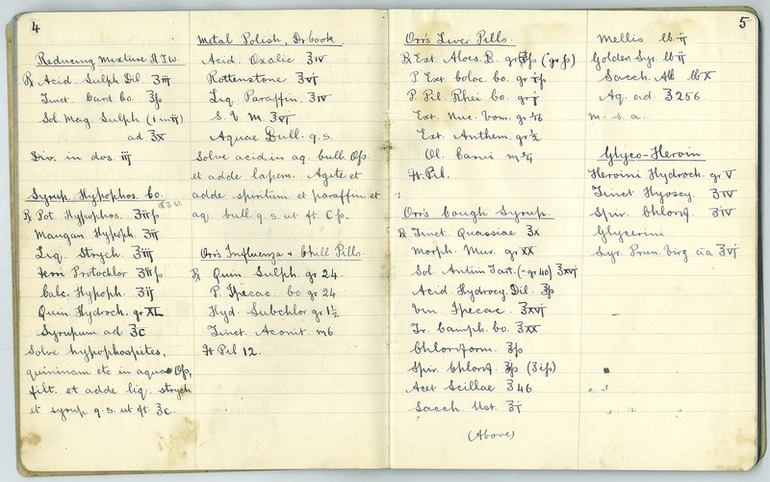 4
Reducing Mixture A.J.W.
℞ Acid. Sulph Dil ʒiij
Tinct. Card Co. ʒſs
Sol. Mag Sulph (1 in ij)
ad ℥x
Div. in dos. iij
Syrup. Hypophos. Co.
A.J.W.
℞ Pot. Hypophos. ʒijſs
Mangan Hypoph. ʒij
Liq. Strych ʒiij
Ferri Protochlor ʒijſs
Calc. Hypoph. ʒij
Quin Hydroch. gr XL
Syrupum ad ℥c
Solve hypophospites,
quininam etc in aquae Oſs,
filt. et adde liq. strych
et syrup q.s. ut ft ℥c.
Metal Polish, Dr book
Acid. Oxalic ℥iv
Rottenstone ℥vj
Liq. Paraffin. ℥iv
S.V.M. ℥vj
Aquae Bull. q.s.
Solve acid. in aq. bull. Oſs
et adde lapem. Agite et
adde spiritum et paraffin et
aq. bull q.s. ut ft C ſs.
Orr's Influenza & Chill Pills.
℞ Quin. Sulph. gr 24.
P. Ipecac. Co gr 24.
Hyd. Subchlor gr 1½
Tinct. Aconit. m6
Ft Pil 12.
5
Orr's Liver Pills.
℞ Ext. Aloes. B. (gr ſs)
P Ext Coloc. Co. gr iſs
P. Pil Rhei Co. gr j
Ext. Nuc. Vom. gr
Ext. Anthem. gr ½
Ol. Carui m ¼
Ft Pil.
Orr's Cough Syrup.
℞ Tinct. Quassiae ℥x
Morph. Mur. gr XX
Sol. Antim Tart. (=gr 40) ℥xvj
Acid Hydrocy. Dil. ℥ſs
Vin. Ipecac. ℥xvj
Tr. Camph. Co. ℥XX
Chloroform. ℥ſs
Spir. Chlorof. (ʒiſs)
Acet Scillae ℥46
Sacch. Ust. ℥j
(Above)
Mellis lb ij
Golden Syr. lb ij
Sacch. Alb lb X
Aq. ad. ℥256.
m. s. a.
Glyco-Heroin
Heroini Hydroch. gr V
Tinct Hyoscy. ℥iv
Spir. Chlorof ℥iv
Glycerini
Syr. Prun. Virg āa ℥vj